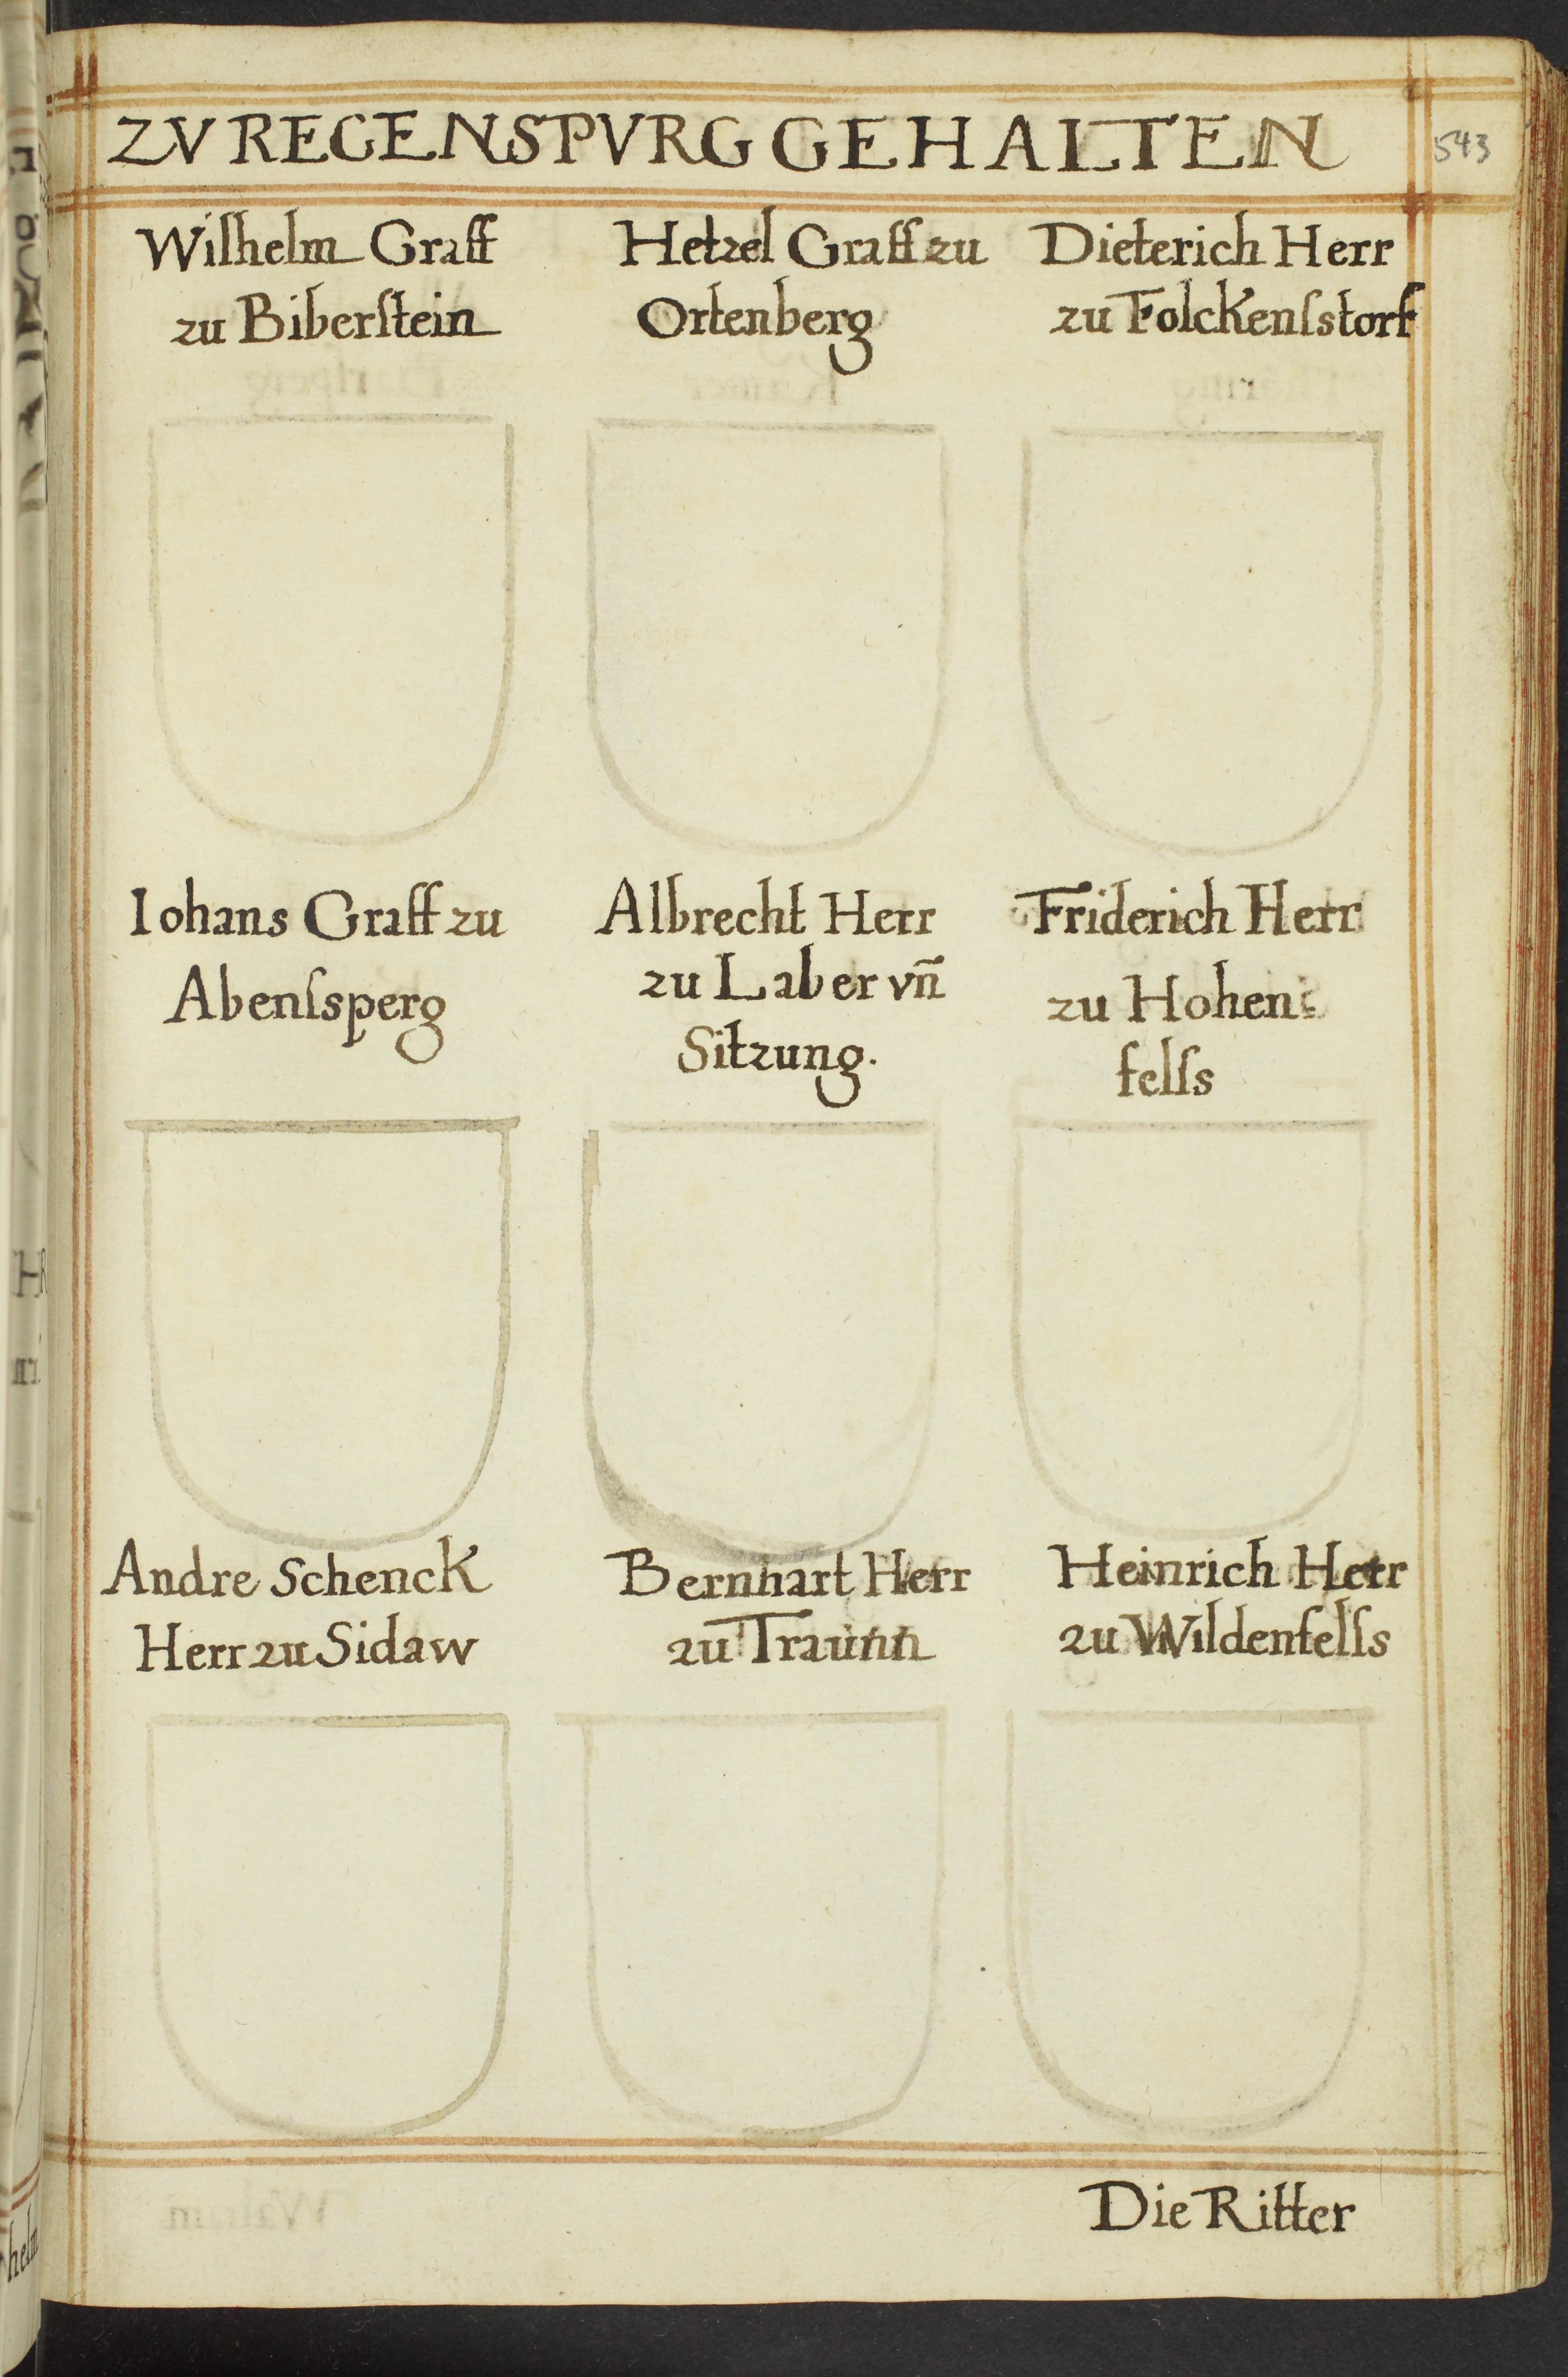 ZV REGENSPVRG GEHALTEN
543
Wilhelm Graff
zu Biberſtein
Hetzel Graff zu
Ortenberg
Dieterich Herr
zu Folckenſstorf
Iohans Graff zu
Abenſsperg
Albrecht Herr
zu Laber vñ
Sitzung.
Friderich Herr
zu Hohen
felſs
Andre Schenck
Herr zu Sidaw
Bernhart Herr
zu Traunn
Heinrich Herr
zu Wildenfelſs
Die Ritter